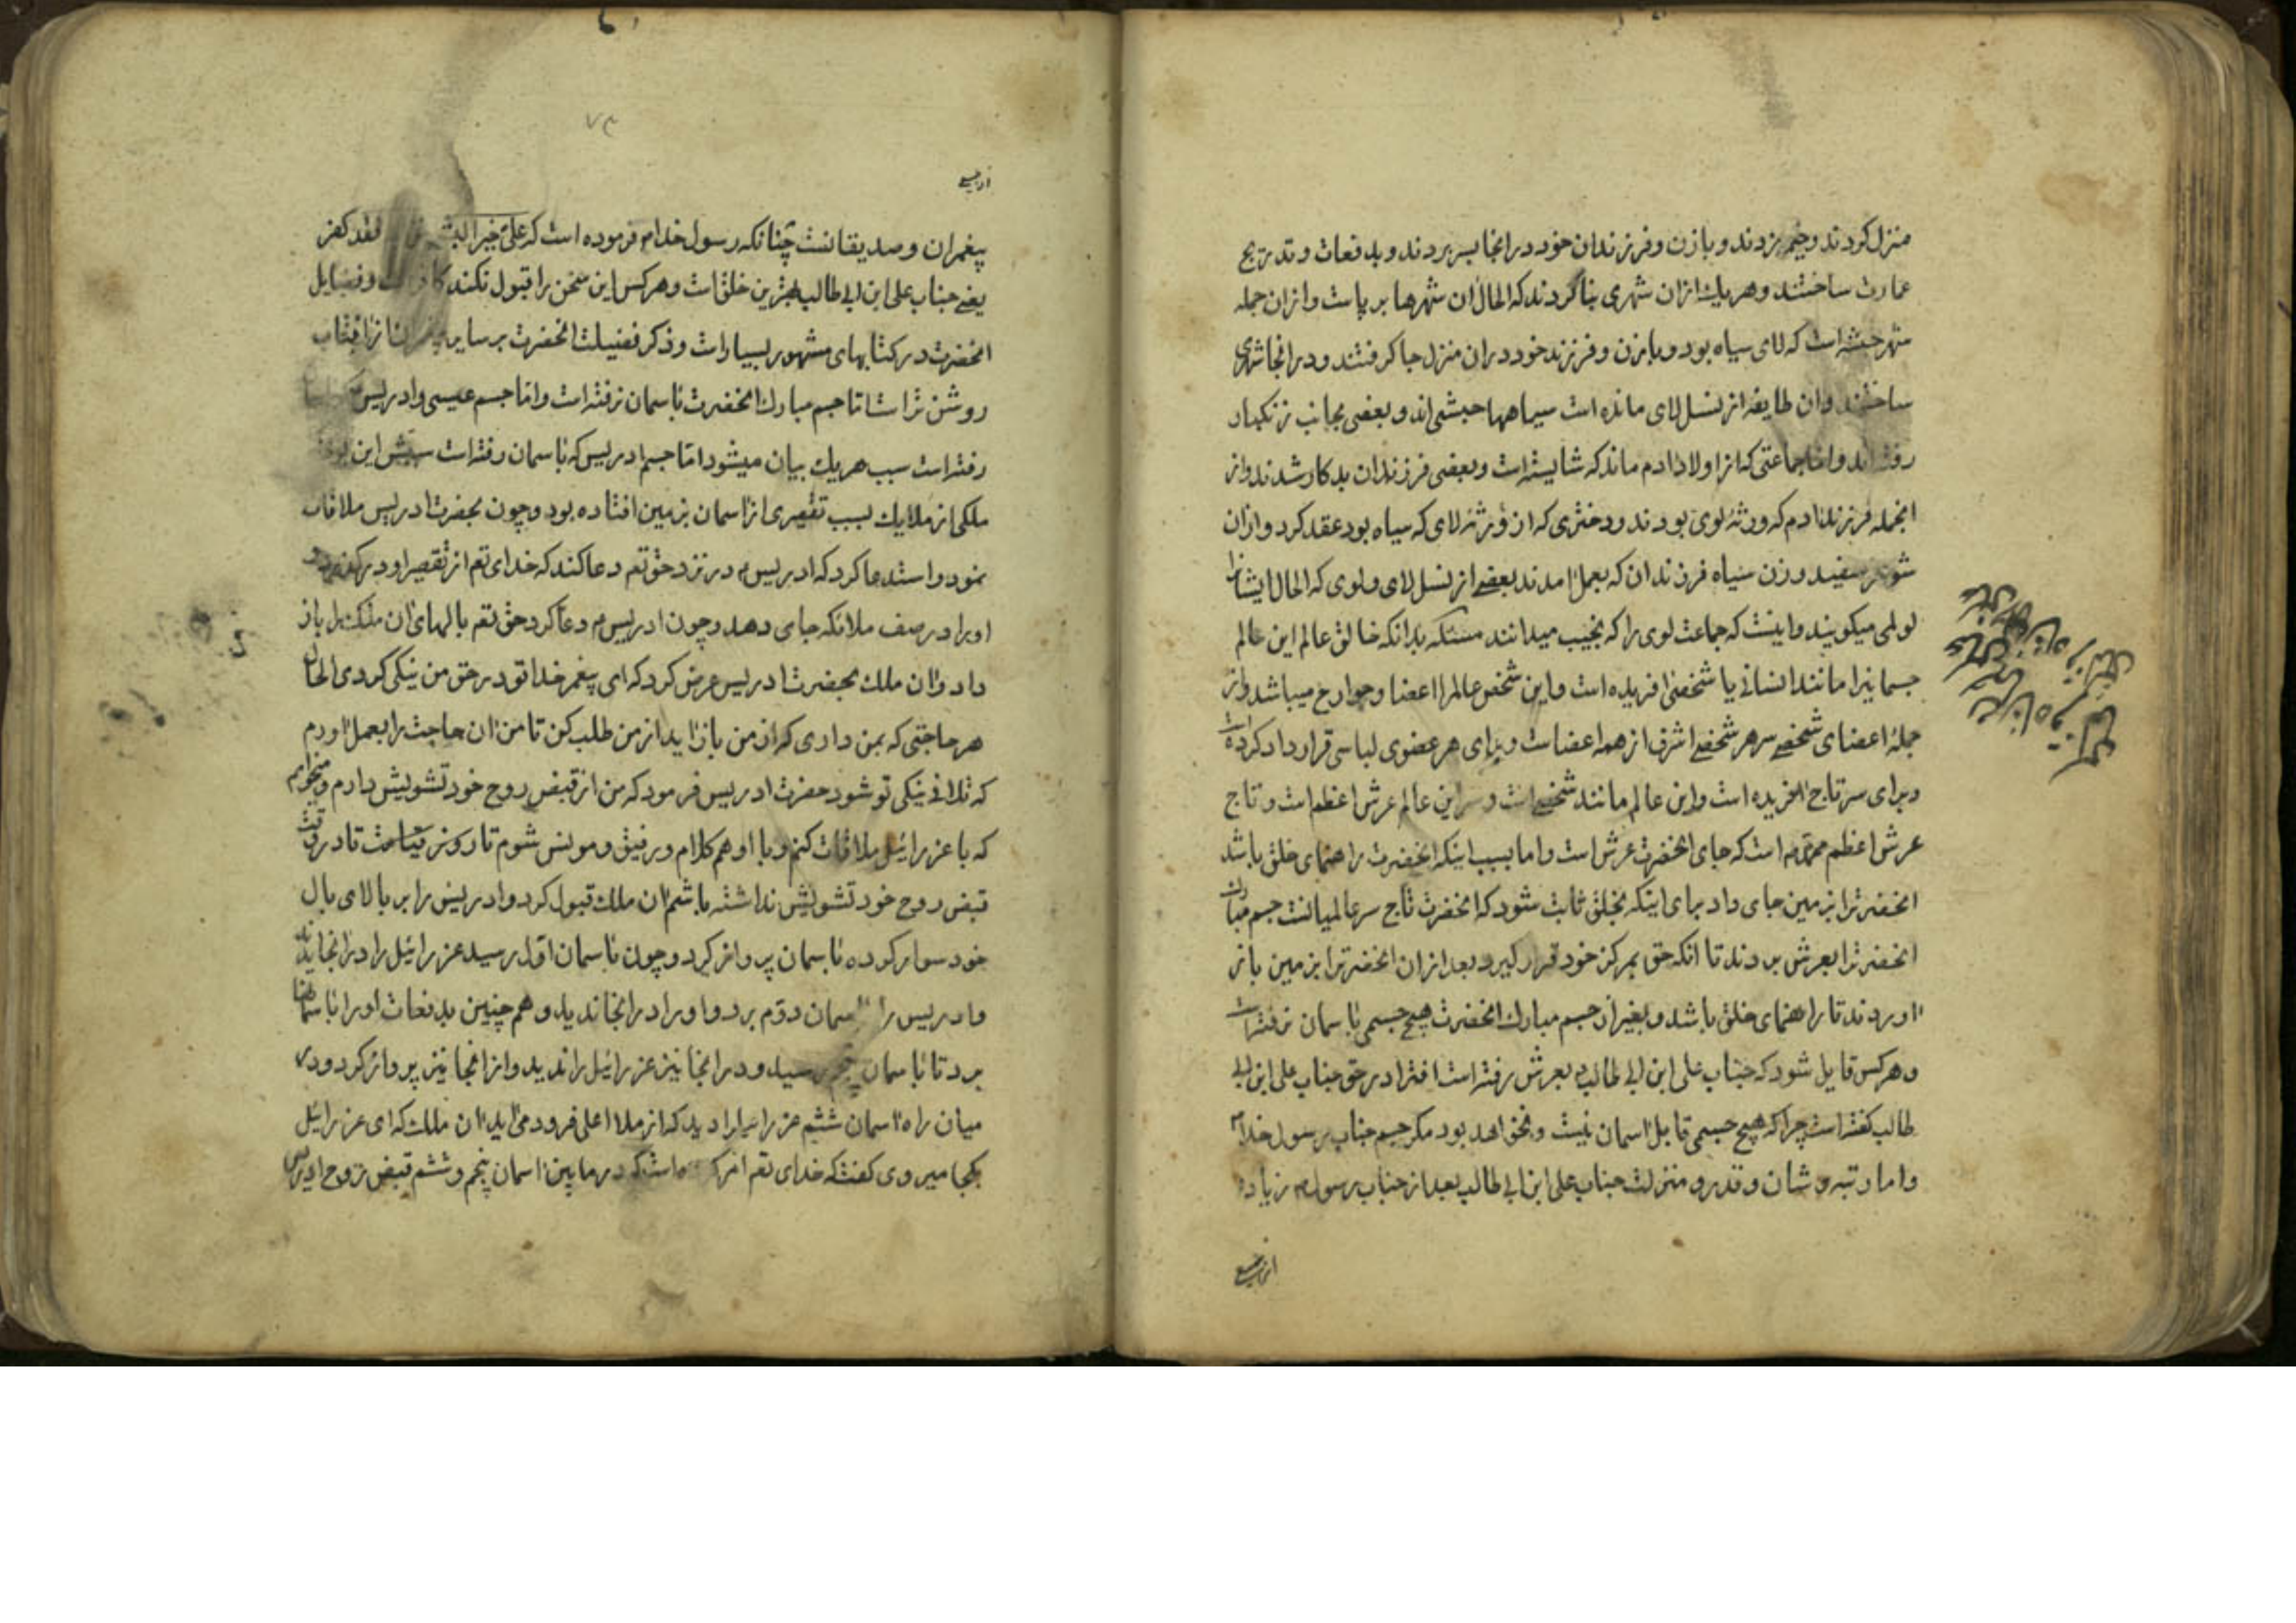 منزل کردند و خیمه زدند و با زن و فرزندان خود در انجا بسر بردند و بدفعات و تدریج
عمارت ساختند و هر یك ازان شهری بنا کردند که الحال ان شهرها بر پاست و ازان جمله
شهر حبشه است که لای سیاه بود و با زن و فرزند خود دران منزل جا گرفتند و در انجا شهری
ساختند و ان طایفه از نسل لای مانده است سیاهها حبشی اند و بعضی بجانب زنکبار
رفته اند و اما جماعتی که از اولاد ادم ماند که شایسته است و بعضی فرزندان بدکار شدند و از
انجمله فرزند ادم که ورثهٔ لوی بودند و دختری که از ورثهٔ لای که سیاه بود عقد کرد و ازان
شوهر سفید و زن سیاه فرزندان که بعمل امدند بعضی از نسل لای و لوی که الحال ایشانرا
لولی میکویند و اینست که جماعت لوی را که نجیب میدانند مسئله بدانکه خالق عالم این عالم
جسمانیرا مانند انسانی یا شخصی افریده است و این شخص عالمرا اعضا و جوارح میباشد و از
جملهٔ اعضای شخصی سر هر شخصی اشرف از همه اعضاست و برای هر عضوی لباسی قرار داد کرده است
و برای سر تاج افریده است و این عالم مانند شخصی است و سر این عالم عرش اعظم است و تاج
عرش اعظم محمد است که جای انحضرت عرش است و اما بسبب اینکه انحضرت راهنمای خلق باشد
انحضرترا بزمین جای داد برای اینکه بخلق ثابت شود که انحضرت تاج سر عالمیانست جسم مبارك
انحضرترا بعرش بردند تا انکه حق بمرکز خود قرار کیرد و بعد ازان انحضرترا بزمین باز
اوردند تا راهنمای خلق باشد و بغیر از جسم مبارك انحضرت هیچ جسمی باسمان نرفته است
و هر کس قایل شود که جناب علی ابن ابی طالب بعرش رفته است افترا در حق جناب علی ابن ابی
طالب کفته است چرا که هیچ جسمی قابل اسمان نیست و نخواهد بود مکر جسم جناب رسول خدا
و اما رتبه و شان و قدر و منزلت جناب علی ابن ابی طالب بعد از جناب رسول زیاده
از جمیع
از جمیع
پیغمبران و صدیقانست چنانکه رسول خدا فرموده است که علی خیر البشر فقد کفر
یعنی جناب علی ابن ابی طالب بهترین خلق است و هر کس این سخن را قبول نکند کافر است و فضایل
انحضرت در کتابهای مشهور بسیار است و ذکر فضیلت انحضرت بر سایر پیغمبران از افتاب
روشن تر است اما جسم مبارك انحضرت باسمان نرفته است و اما جسم عیسی و ادریس
رفته است سبب هر یك بیان میشود اما جسم ادریس که باسمان رفته است سببش این بود
ملکی از ملایك بسبب تقصیری از اسمان بزمین افتاده بود و چون بحضرت ادریس ملاقات
نمود و استدعا کرد که ادریس در نزد حق تعم دعا کند که خدای تعم از تقصیر او در کذرد و
اورا در صف ملائکه جای دهد و چون ادریس دعا کرد حق تعم بالهای ان ملك را باز
داد و ان ملك بحضرت ادریس عرض کرد که ای پیغمبر خدا تو در حق من نیکی کردی الحال
هر حاجتی که بمن داری که از من باز اید از من طلب کن تا من ان حاجت را بعمل اورم
که تلافی نیکی تو شود حضرت ادریس فرمود که من از قبض روح خود تشویش دارم و میخواهم
که با عزرائیل ملاقات کنم و با او هم کلام و رفیق و مونس شوم تا روز قیامت تا در وقت
قبض روح خود تشویش نداشته باشم ان ملك قبول کرد و ادریس را بر بالای بال
خود سوار کرده باسمان پرواز کرد و چون باسمان اول رسید عزرائیل را در انجا ندید
و ادریس را باسمان دوم برد و اورا در انجا ندید و هم چنین بدفعات اورا باسمانها
برد تا باسمان پنجم رسید و در انجا نیز عزرائیل را ندید و از انجا نیز پرواز کرد و در
میان راه اسمان ششم عزرائیل را دید که از ملا اعلی فرود می اید ان ملك که ای عزرائیل
بکجا میروی کفت که خدای تعم امر کرده است که در مابین اسمان پنجم و ششم قبض روح ادریس